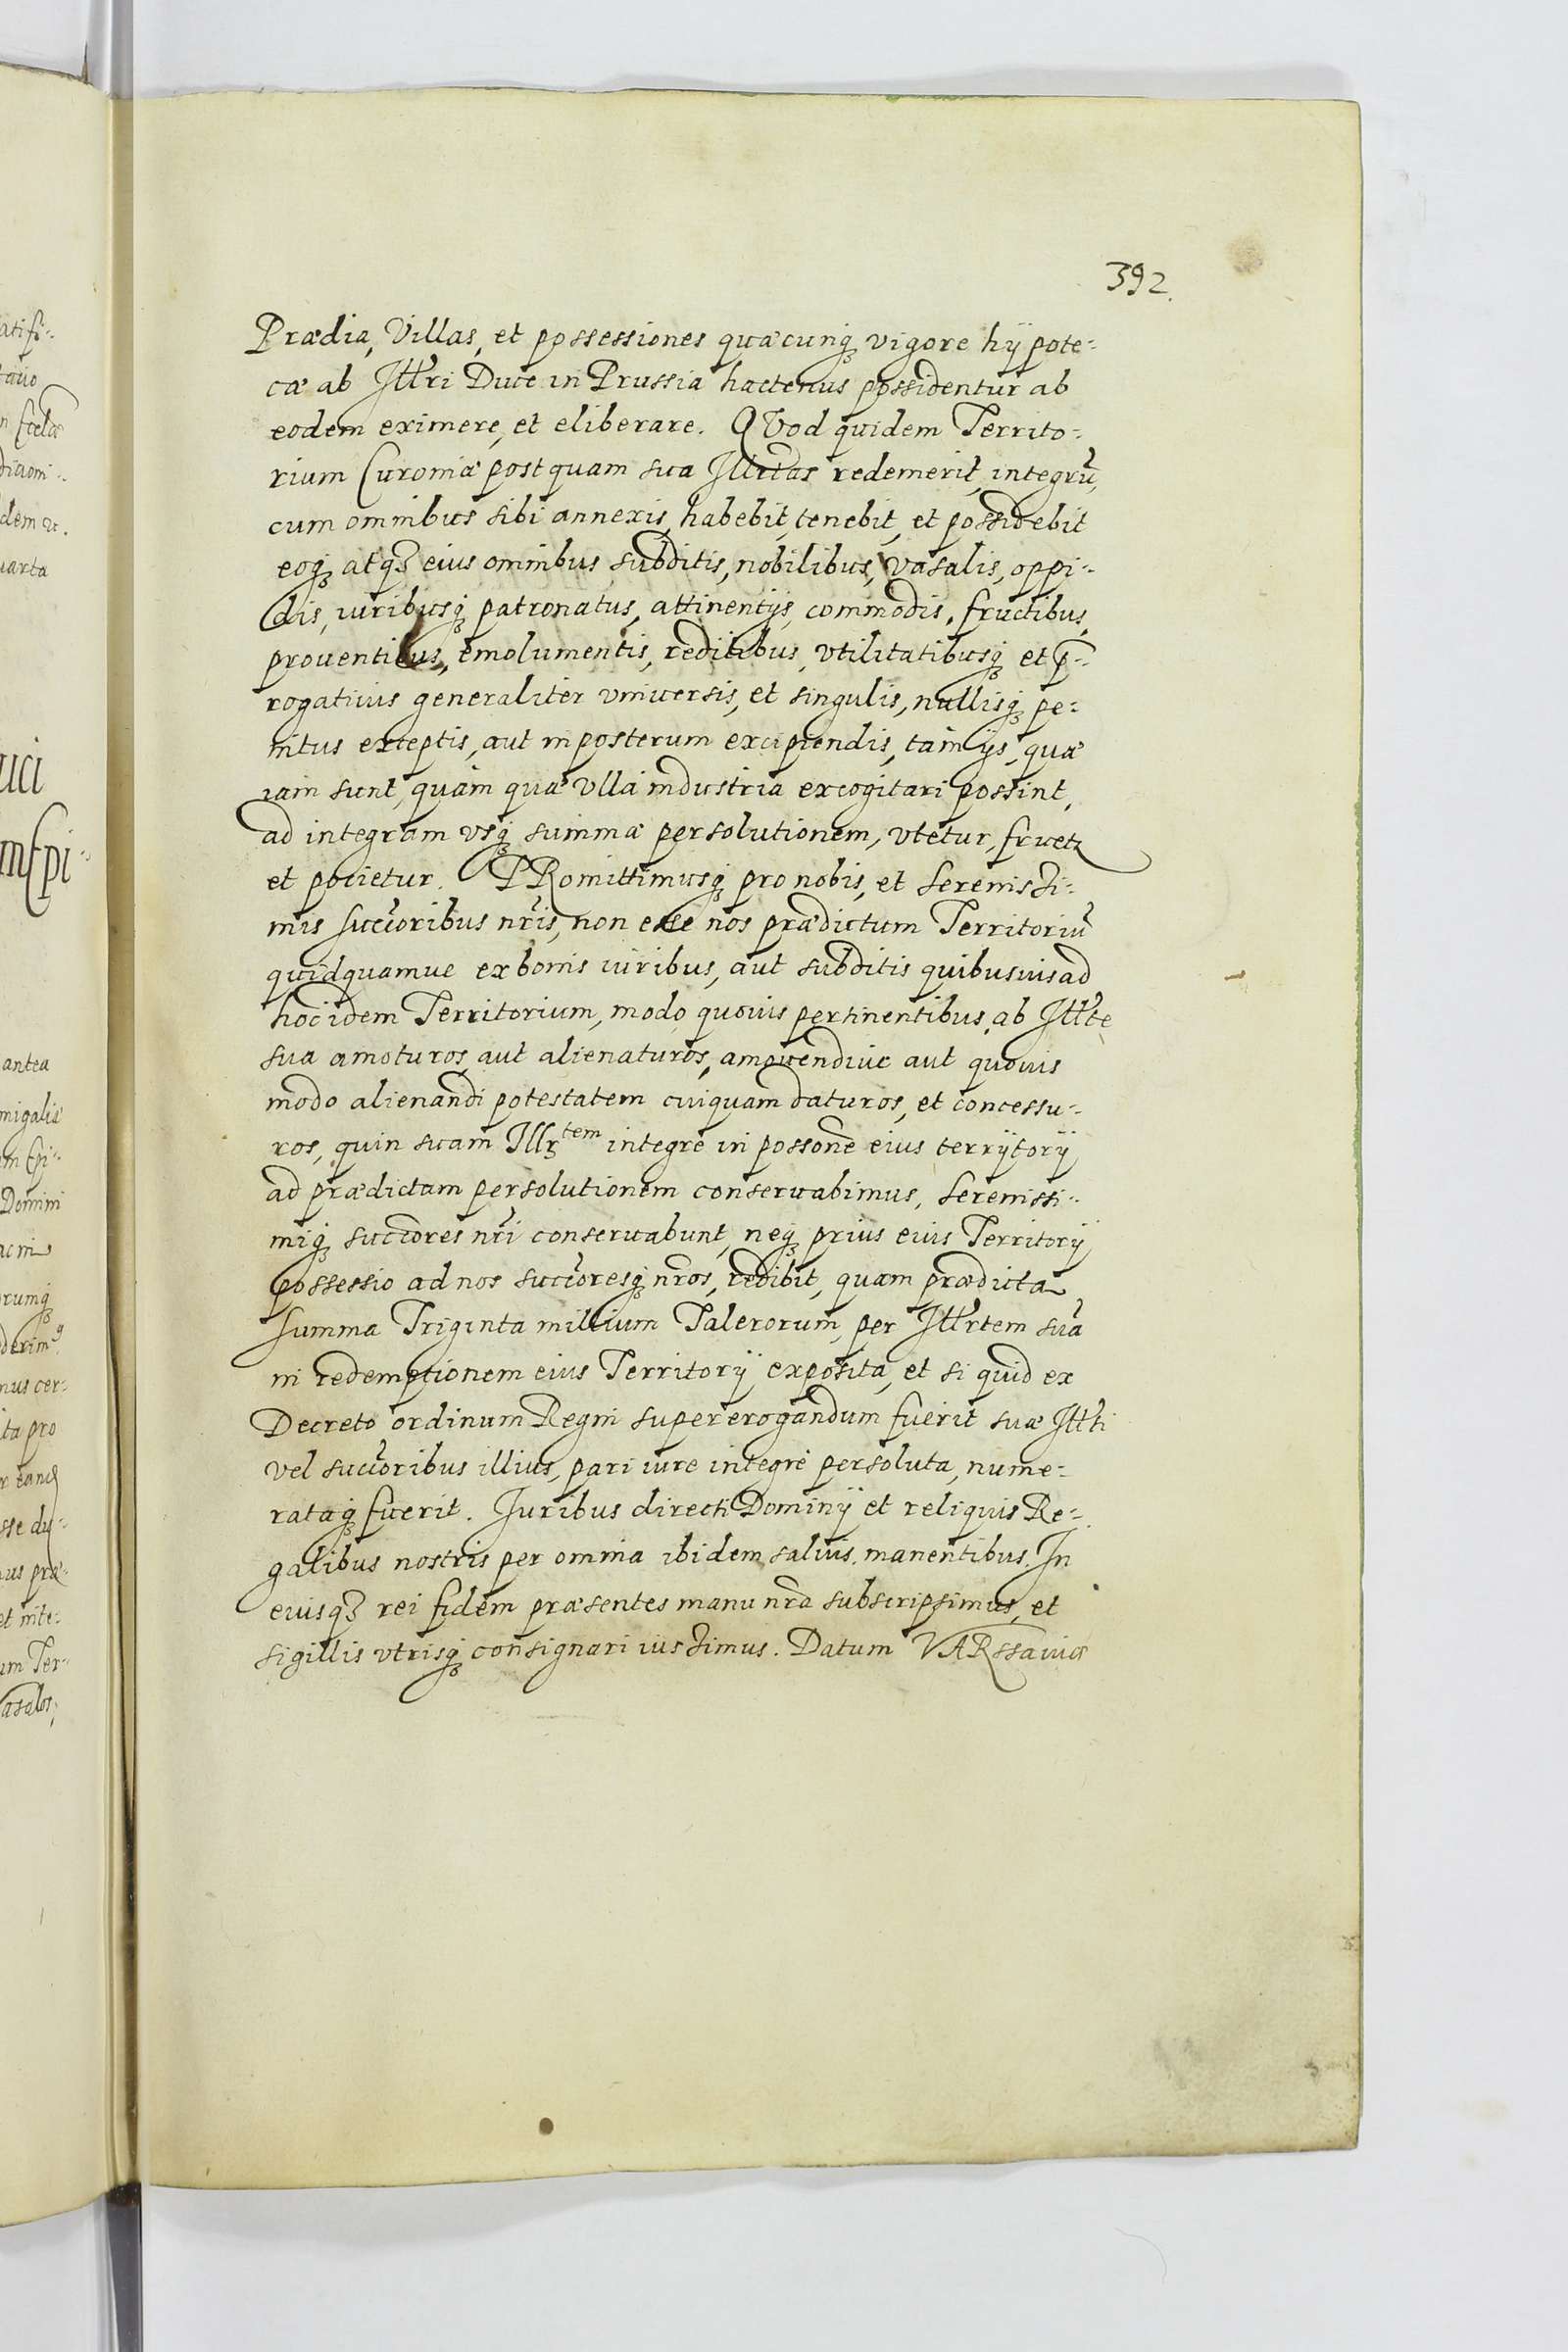 392.
Prædia, Villas, et possessiones quæcunq; vigore hÿpote-
cæ ab Illri Duce in Prussia hactenus possidentur ab
eodem eximere, et eliberare. QVod quidem Territo-
rium Curoniæ postquam sua Illrtas redemerit, integrũ,
cum omnibus sibi annexis, habebit, tenebit, et possidebit
eoq; atq3 eius omnibus subditis, nobilibus, vasalis, oppi-
dis, iuribusq; patronatus, attinentijs, commodis, fructibus,
prouentibus, emolumentis, reditibus, vtilitatibusq; et p̄-
rogatiuis generaliter vniuersis, et singulis, nullisq; pe-
nitus exceptis, aut inposterum excipiendis, tam ijs, quæ
iam sunt, quàm quæ vlla industria excogitari possint,
ad integram vsq; summæ persolutionem, vtetur, fruetz
et pocietur. PRomittimusq; pro nobis, et Serenissi-
mis succoribus nris, non esse nos prædictum Territoriũ
quidquamue ex bonis iuribus, aut subditis quibusuis ad
hoc idem Territorium, modo quouis pertinentibus, ab Illrte
sua amoturos, aut alienaturos, amouendiue aut quouis
modo alienandi potestatem cuiquam daturos, et concessu-
ros, quin suam Illrtem integrè in possone eius terrÿtorÿ
ad prædictam persolutionem conseruabimus, Serenissi-
miq; succores nri conseruabunt, neq; prius eius Territorÿ
possessio ad nos succoresq; nros, redibit, quam prædicta
summa Triginta millium Talerorum, per Illrtem suã
in redemptionem eius Territorÿ exposita, et si quid ex
Decreto ordinum Regni supererogandum fuerit suæ Illrti
vel succoribus illius, pari iure integrè persoluta, nume-
rataq; fuerit. Iuribus directi Dominÿ et reliquis Re-
galibus nostris per omnia ibidem saluis manentibus. In
euisq3 rei fidem præsentes manu nra subscripsimus, et
sigillis vtrisq; consignari iussimus. Datum VARssauiæ